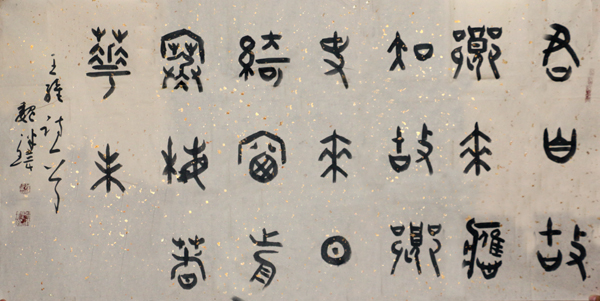 君自故
鄉來應
知故鄉
事來日
綺窗前
寒梅著
華未
王維詩一首